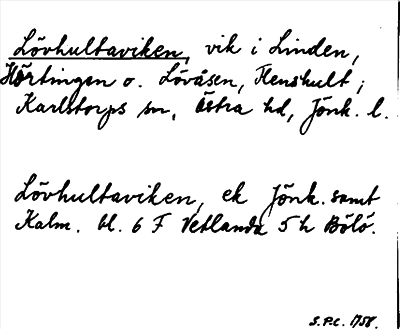 Lövhultaviken, vik i Linden,
Hörtingen o. Lövåsen, Flenshult,
Karlstorps sn, Östra hd, Jönk. l.
Lövhultaviken, ek Jönk. samt
Kalm. bl. 6 F Vetlanda 5 h Bölö.
S.P.C. 1758.